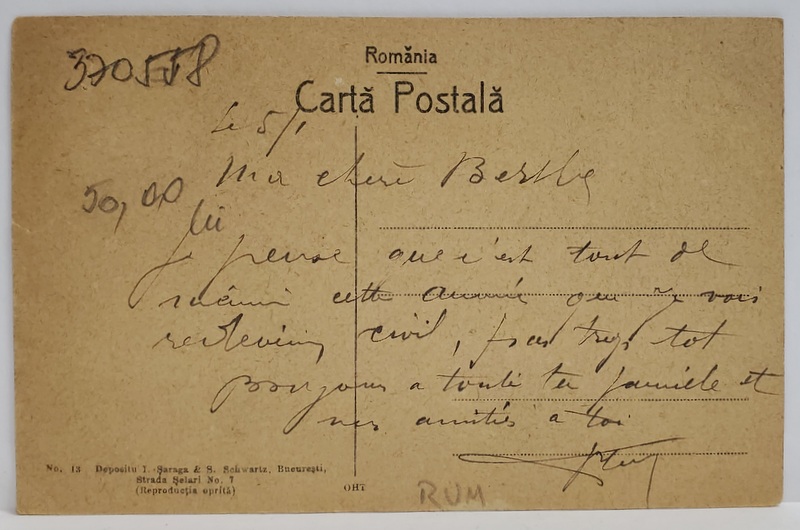 370558
România
Cartă Postală
Le 5/1
Ma chere Berthe
50,00
lii
Je pense que c'est tout de
même cette année que je vais
redevenir civil, pas trop tot
Bonjour a toute ta famille et
mes amitiés à toi
No. 13 Depositu I. Șaraga & S. Schwartz, București,
Strada Șelari No. 7
(Reproducția oprită)
OHT
RUM